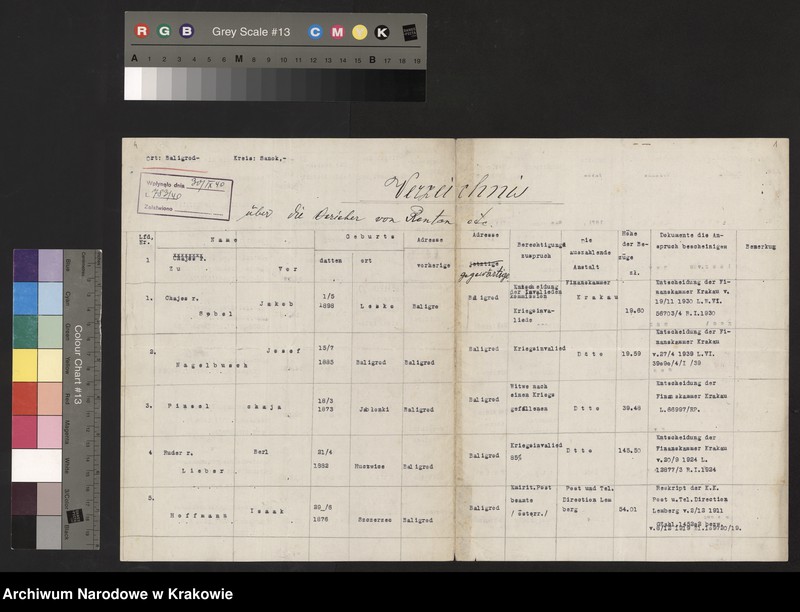 R G B Grey Scale #13 C M Y K
A 1 2 3 4 5 6 M 8 9 10 11 12 13 14 15 B 17 18 19
Colour Chart #13
Blue
Cyan
Green
Yellow
Red
Magenta
White
3/Color
Black
Ort: Baligrod- Kreis: Sanok,-
Wpłynęło dnia 30/IX 40
L. 753/40
Załatwiono
Verzeichnis
über die Bezieher von Renten etc.
Lfd. Nr. Name Geburts Adresse Adresse Berechtigungs zuspruch Die Auszahlende Anstalt Höhe der Be- züge zl. Dokumente die An- spruch bescheinigen Bemerkung
1 Chajes v.
Zu Vor datten ort vorherige jetzige gegenwärtige
1. Chajes v. Sobel Jakob 1/5 1898 Lesko Baligro Baligrod Entscheidung der Invaliden kommission Kriegsinva- lieds Finanzkammer Krakau 19.60 Entscheidung der Fi- nanzkammer Krakau v. 19/11 1930 L.B.VI. 56703/4 R.I.1930
2. Nagelbusch Josef 15/7 1883 Baligrod Baligrod Baligrod Kriegsinvalied Dtto 19.59 Entscheidung der Fi- nanzkammer Krakau v.27/4 1939 L.VI.
3. Pinsel 18/3 1873 Jablonki Baligrod Baligrod Witwe nach einen Kriegs gefallenen Dtto 39.48 Entscheidung der Finanzkammer Krakau L.66997/RP.
4 Ruder r. Lieber Berl 21/4 Baligrod Baligrod Kriegsinvalied 85% Dtto 145.50 Entscheidung der Finanzkammer Krakau v.20/9 1924 L. 12877/3 R.I.1924
5. Hoffmann Isaak 1876 Baligrod Baligrod Post beamte /österr./ Post und Tel. Direction Lem berg 54.01 Reskript der K.K. Post u.Tel.Direction Lemberg v.2/12 1911
Archiwum Narodowe w Krakowie